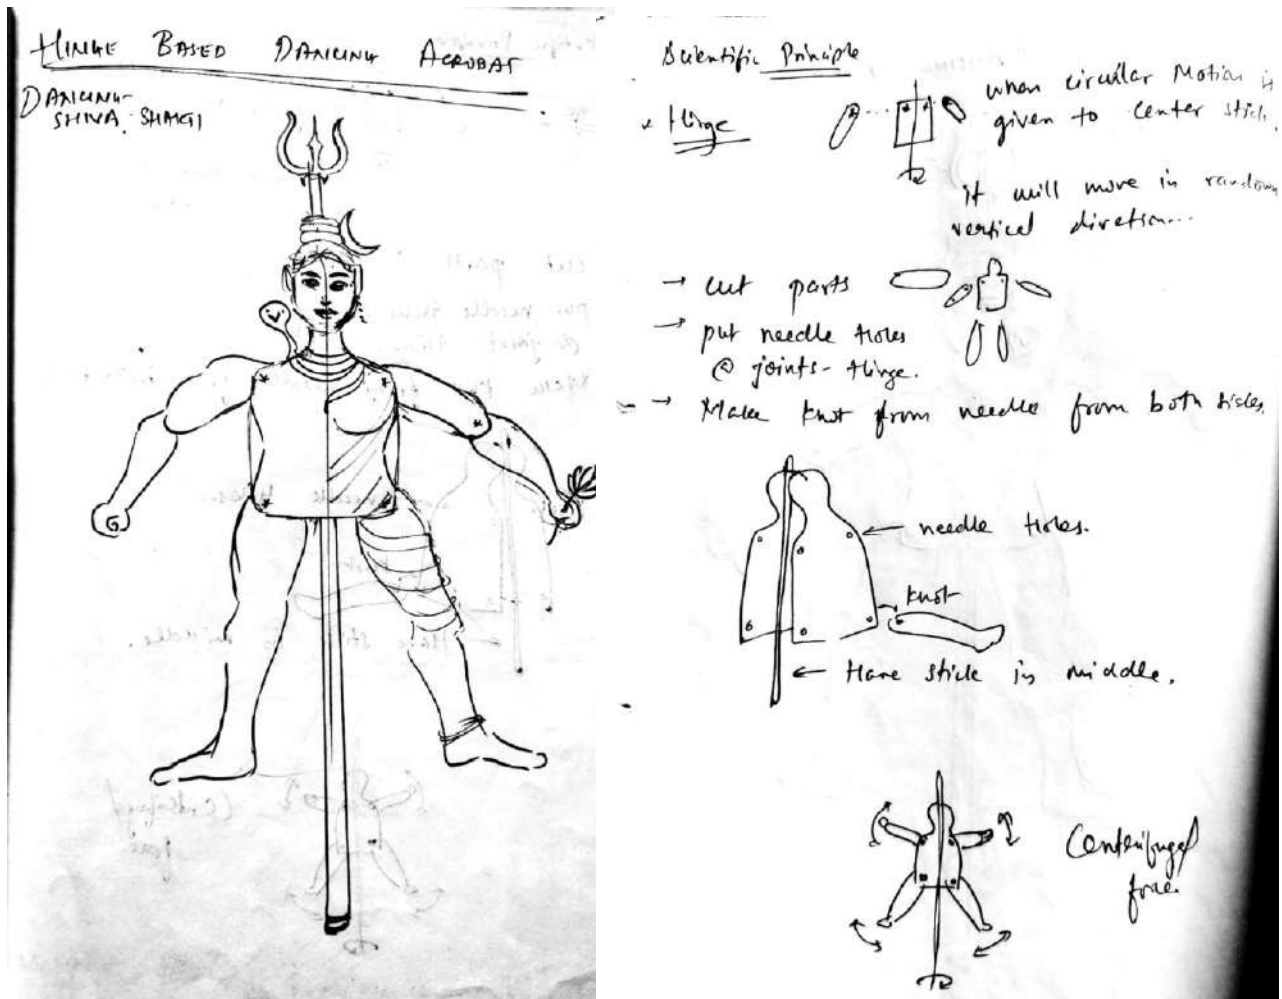 HINGE BASED DANCING ACROBAT
DANCING
SHIVA SHAKTI
Scientific Principle
* Hinge
when circular Motion is
given to center stick.
it will move in random
vertical diretion...
→ cut parts
→ put needle holes
@ joints - Hinge.
→ Make knot from needle from both sides.
← needle holes.
knot
← Have stick in middle.
Centrifugal
force